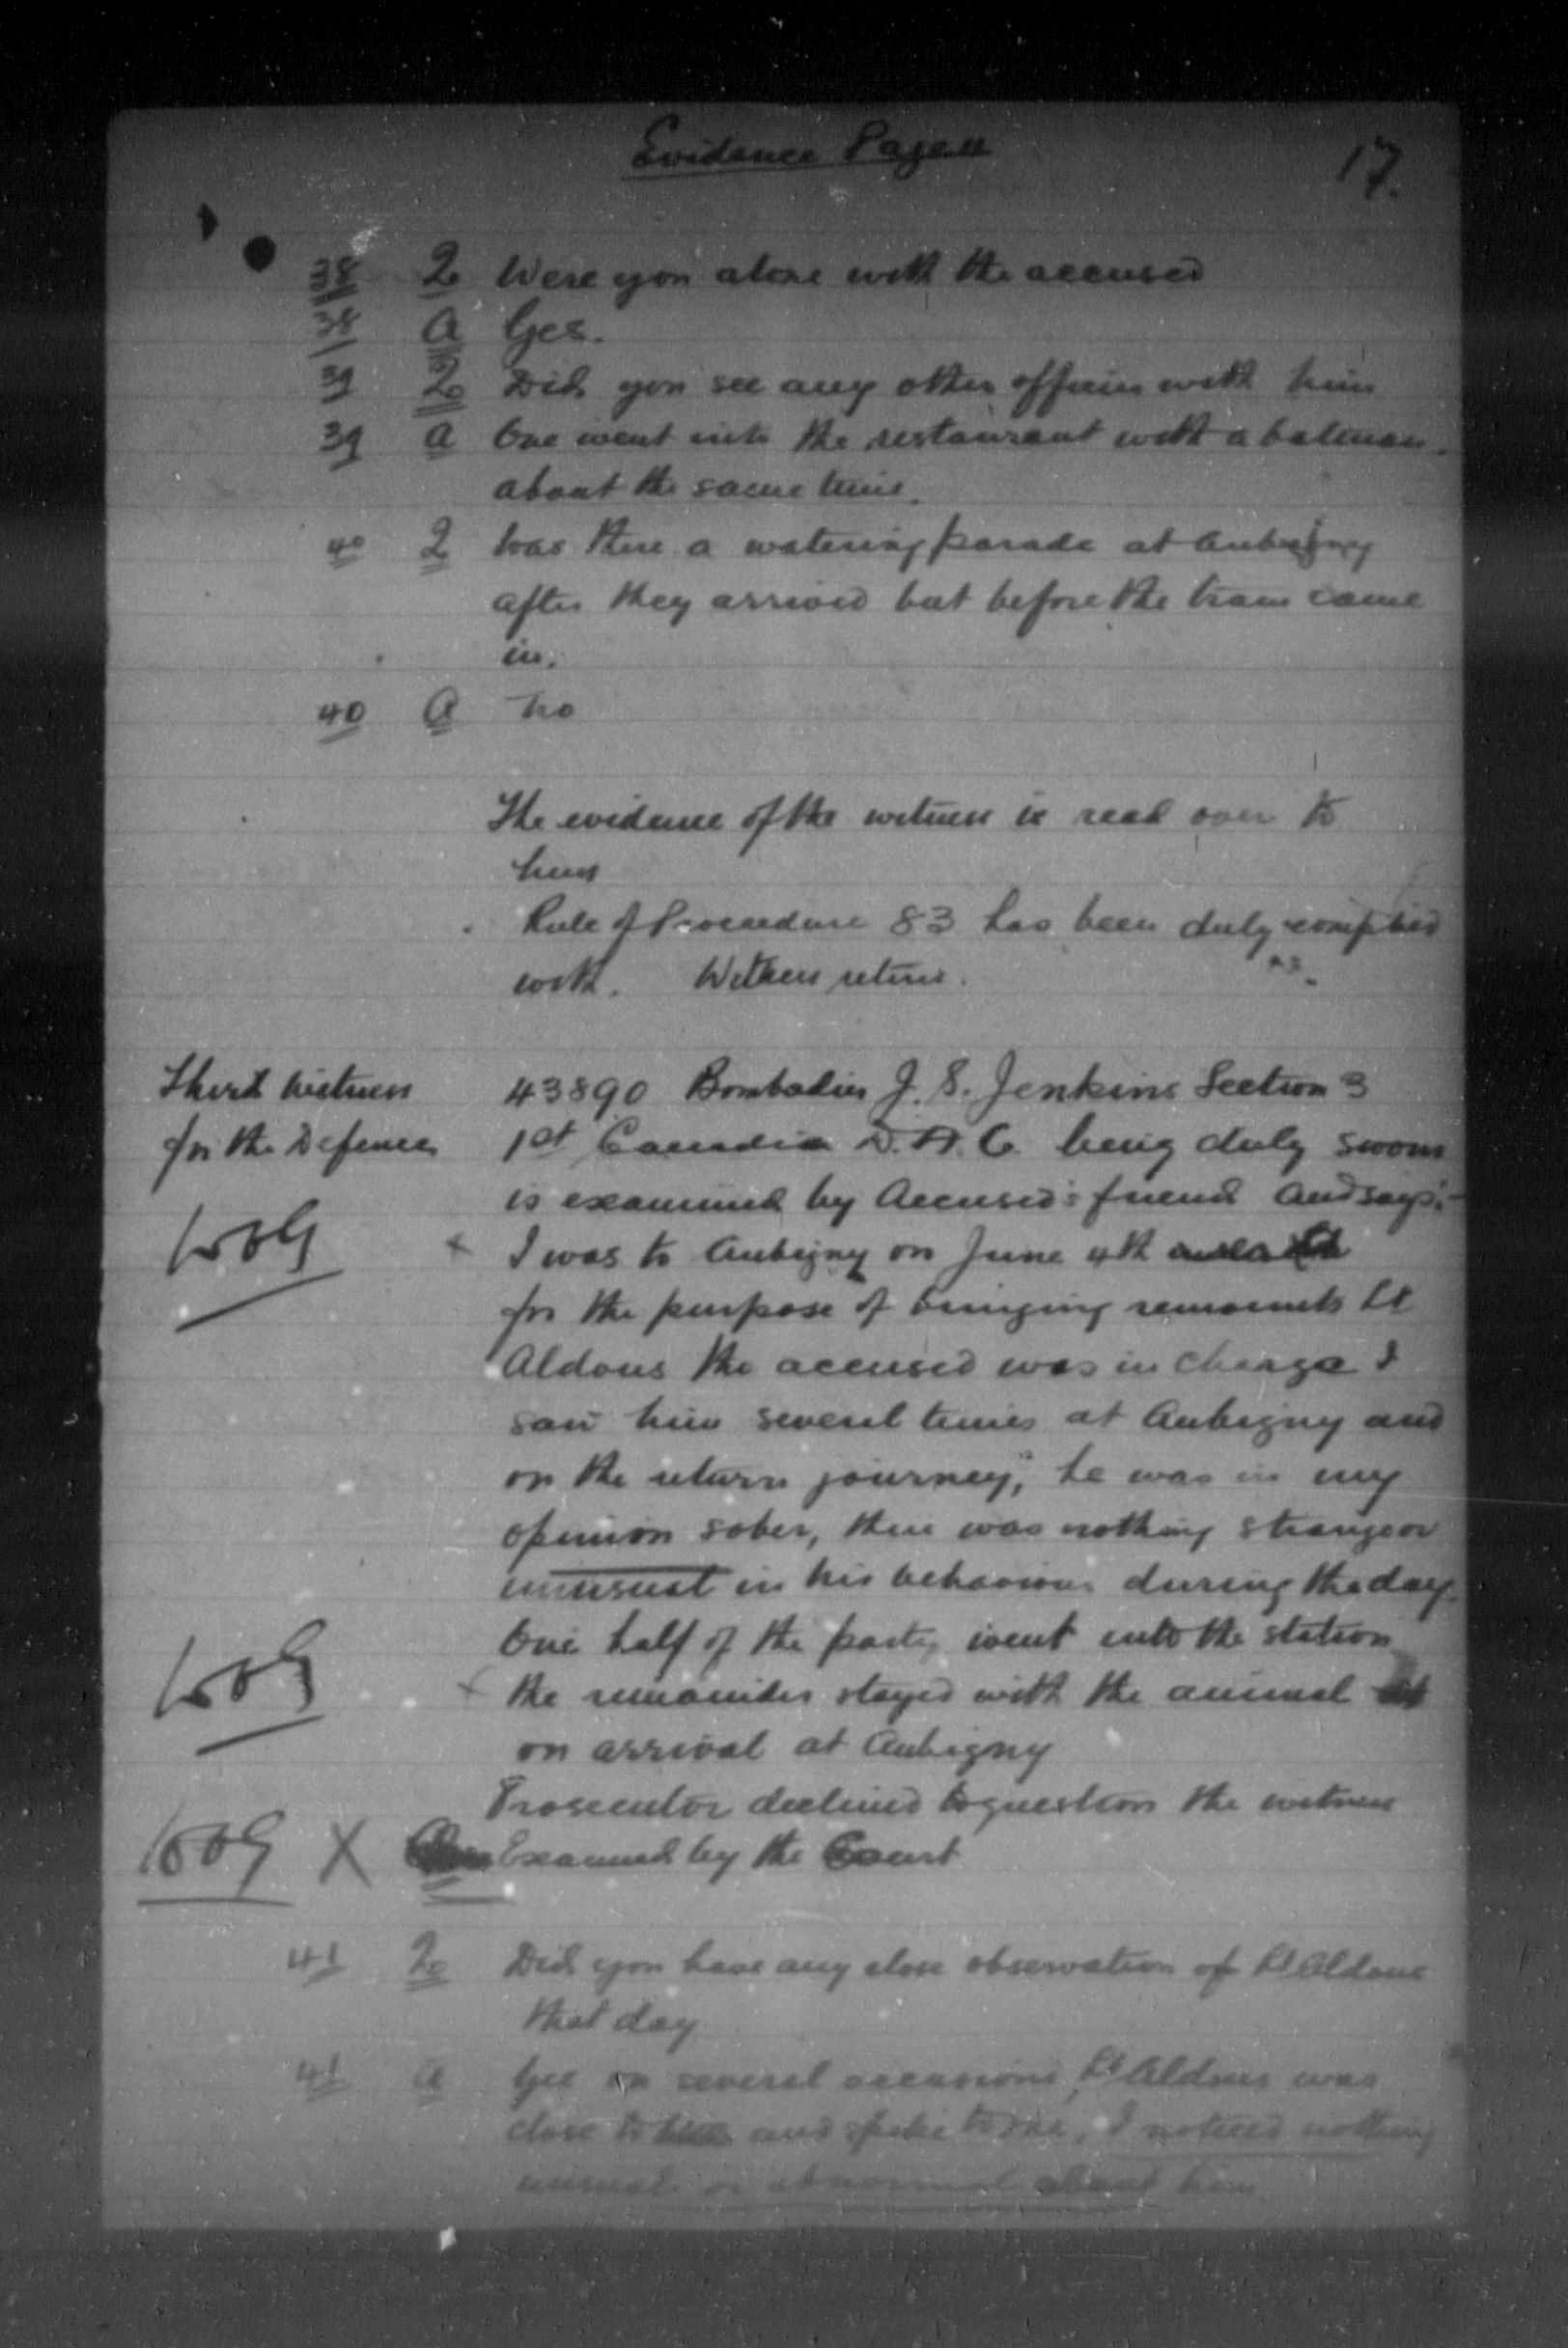 Evidence Pages
17.
38 Q Were you alone with the accused
38 A Yes.
39 Q Did you see any other officer with him
39 A One went into the restaurant with a batman
about the same time.
40 Q Was there a watering parade at Aubigny
after they arrived but before the train came
in.
40 A No
The evidence of the witness is read over to
him
Rule of Procedure 83 has been duly complied
with. Witness retires.
Third Witness
for the Defence
43890 Bombadier J. S. Jenkins Section 3
1st Canadia D.A.C. being duly sworn
is examined by Accused's friend and says:-
I was to Aubigny on June 4th
for the purpose of bringing remounts Lt
Aldous the accused was in charge I
saw him several times at Aubigny and
on the return journey, he was in my
opinion sober, there was nothing strange or
unusual in his behaviour during the day.
One half of the party went into the station
x the remainder stayed with the animal
on arrival at Aubigny
Prosecutor declined to question the witness
X Examined by the Court
41 Q Did you have any close observation of Lt Aldous
that day
41 A Yes on several occasions, Lt Aldous was
close to and spoke to me, I noticed nothing
unusual or abnormal about him